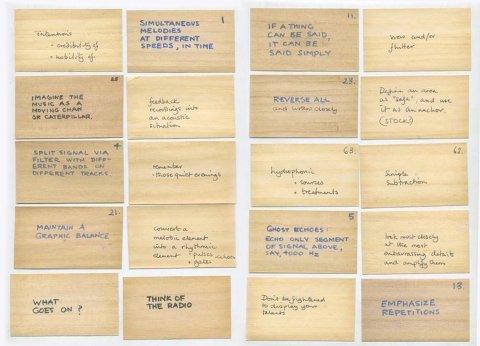 intentions
• credibility of
• nobility of
1
SIMULTANEOUS
MELODIES
AT DIFFERENT
SPEEDS, IN TIME
11.
IF A THING
CAN BE SAID,
IT CAN BE
SAID SIMPLY
wow and/or
flutter
IMAGINE THE
MUSIC AS A
MOVING CHAIN
OR CATERPILLAR.
feedback
recordings into
an acoustic
situation
23.
REVERSE ALL
and listen closely
Define an area
as "safe" and use
it as an anchor
(STOCK!)
4
SPLIT SIGNAL VIA
FILTER WITH DIFF-
ERENT BANDS ON
DIFFERENT TRACKS
remember
• those quiet evenings
63.
hydrophonic
• sources
• treatments
62.
Simple
subtraction
21.
MAINTAIN A
GRAPHIC BALANCE
convert a
melodic element
into a rhythmic
element • pulses
• gates
5
GHOST ECHOES:
ECHO ONLY SEGMENT
OF SIGNAL ABOVE,
SAY, 4000 HZ
look most closely
at the most
embarrassing details
and amplify them
WHAT
GOES ON?
THINK OF
THE RADIO
Don't be frightened
to display your
talents
13.
EMPHASIZE
REPETITIONS